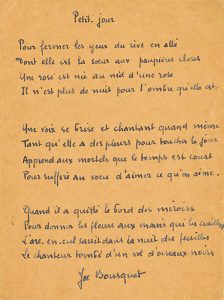 Petit jour
Pour fermer les yeux du rêve en allé
Dont elle est la sœur aux paupières closes
Une rose est née au nid d'une rose
Il n'est plus de nuit pour l'ombre qu'elle est.
Une voix se brise et chantant quand même
Tant qu'elle a des pleurs pour toucher le jour
Apprend aux mortels que le temps est court
Pour suffire au vœu d'aimer ce qu'on aime.
Quand il a quitté le bord des miroirs
Pour donner les fleurs aux mains qui les cueillent
L'arc-en-ciel saisit dans la nuit des feuilles
Le chanteur d'un vol d'oiseaux noirs
Joe Bousquet